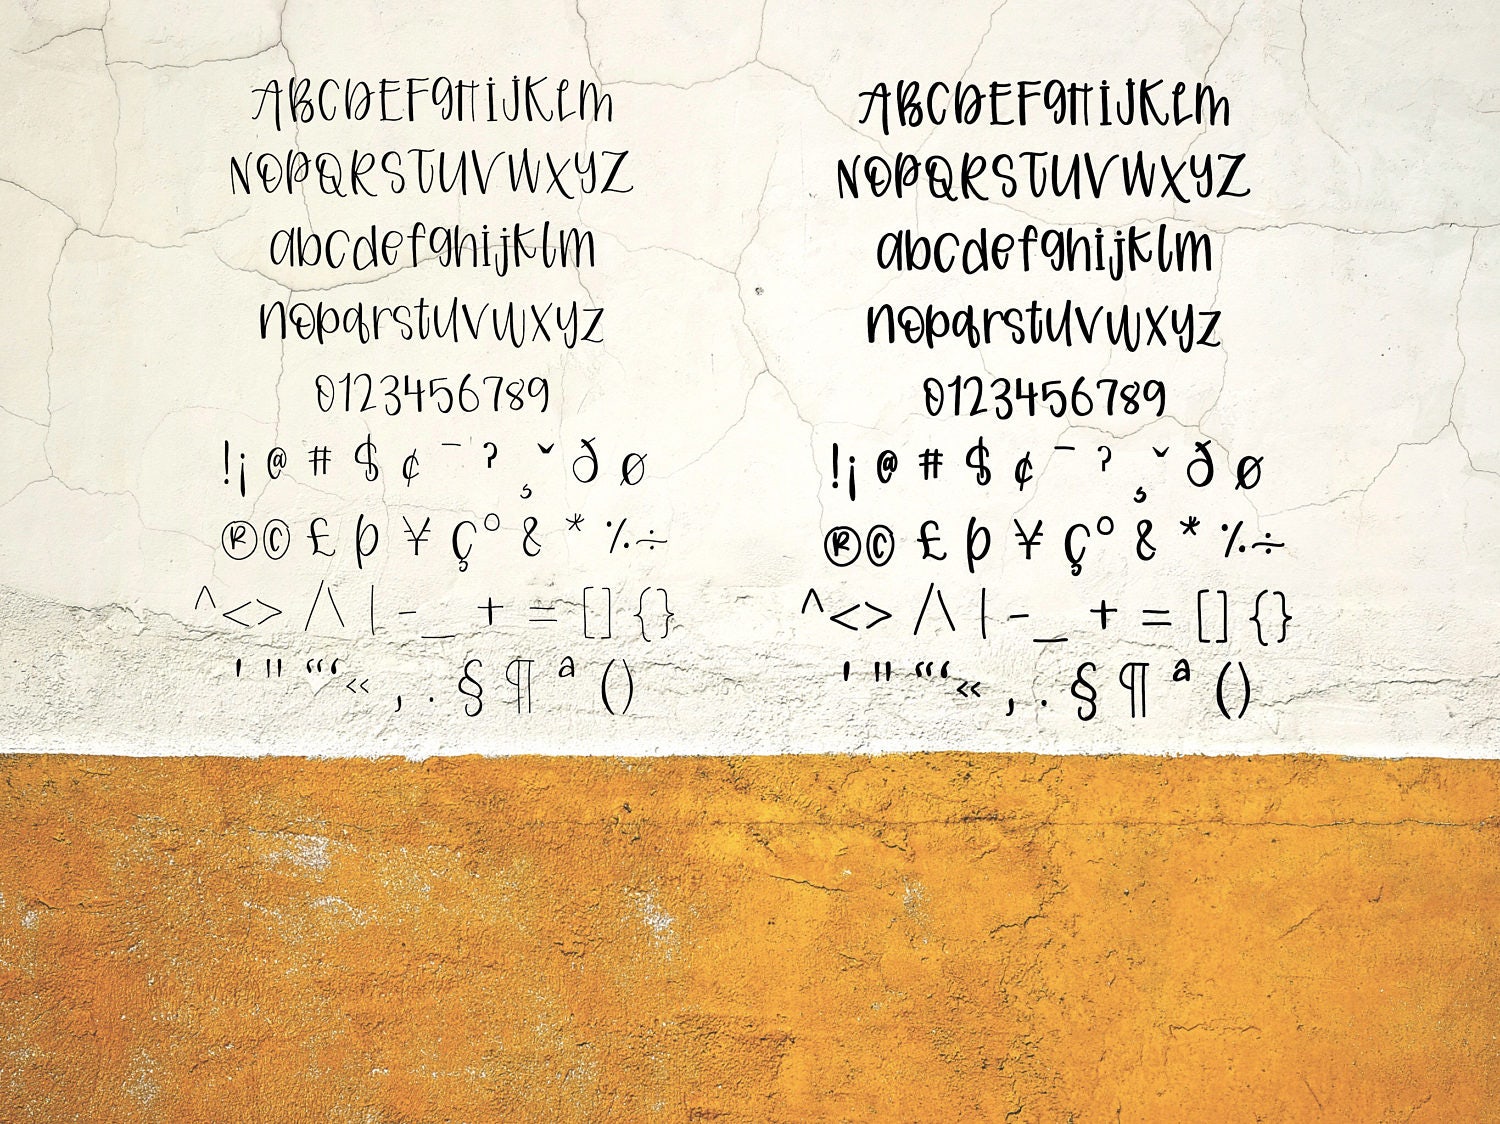 ABCDEFGHIJKLM
NOPQRSTUVWXYZ
abcdefghijklm
nopqrstuvwxyz
0123456789
!¡ @ # $ ¢ ¯ ? ¸ ˇ ð ø
®© £ þ ¥ çº & * % ÷
^<> /\ | - _ + = [] {}
' " “‘ « , . § ¶ ª ()
ABCDEFGHIJKLM
NOPQRSTUVWXYZ
abcdefghijklm
nopqrstuvwxyz
0123456789
!¡ @ # $ ¢ ¯ ? ¸ ˇ ð ø
®© £ þ ¥ çº & * % ÷
^<> /\ | - _ + = [] {}
' " “‘ « , . § ¶ ª ()